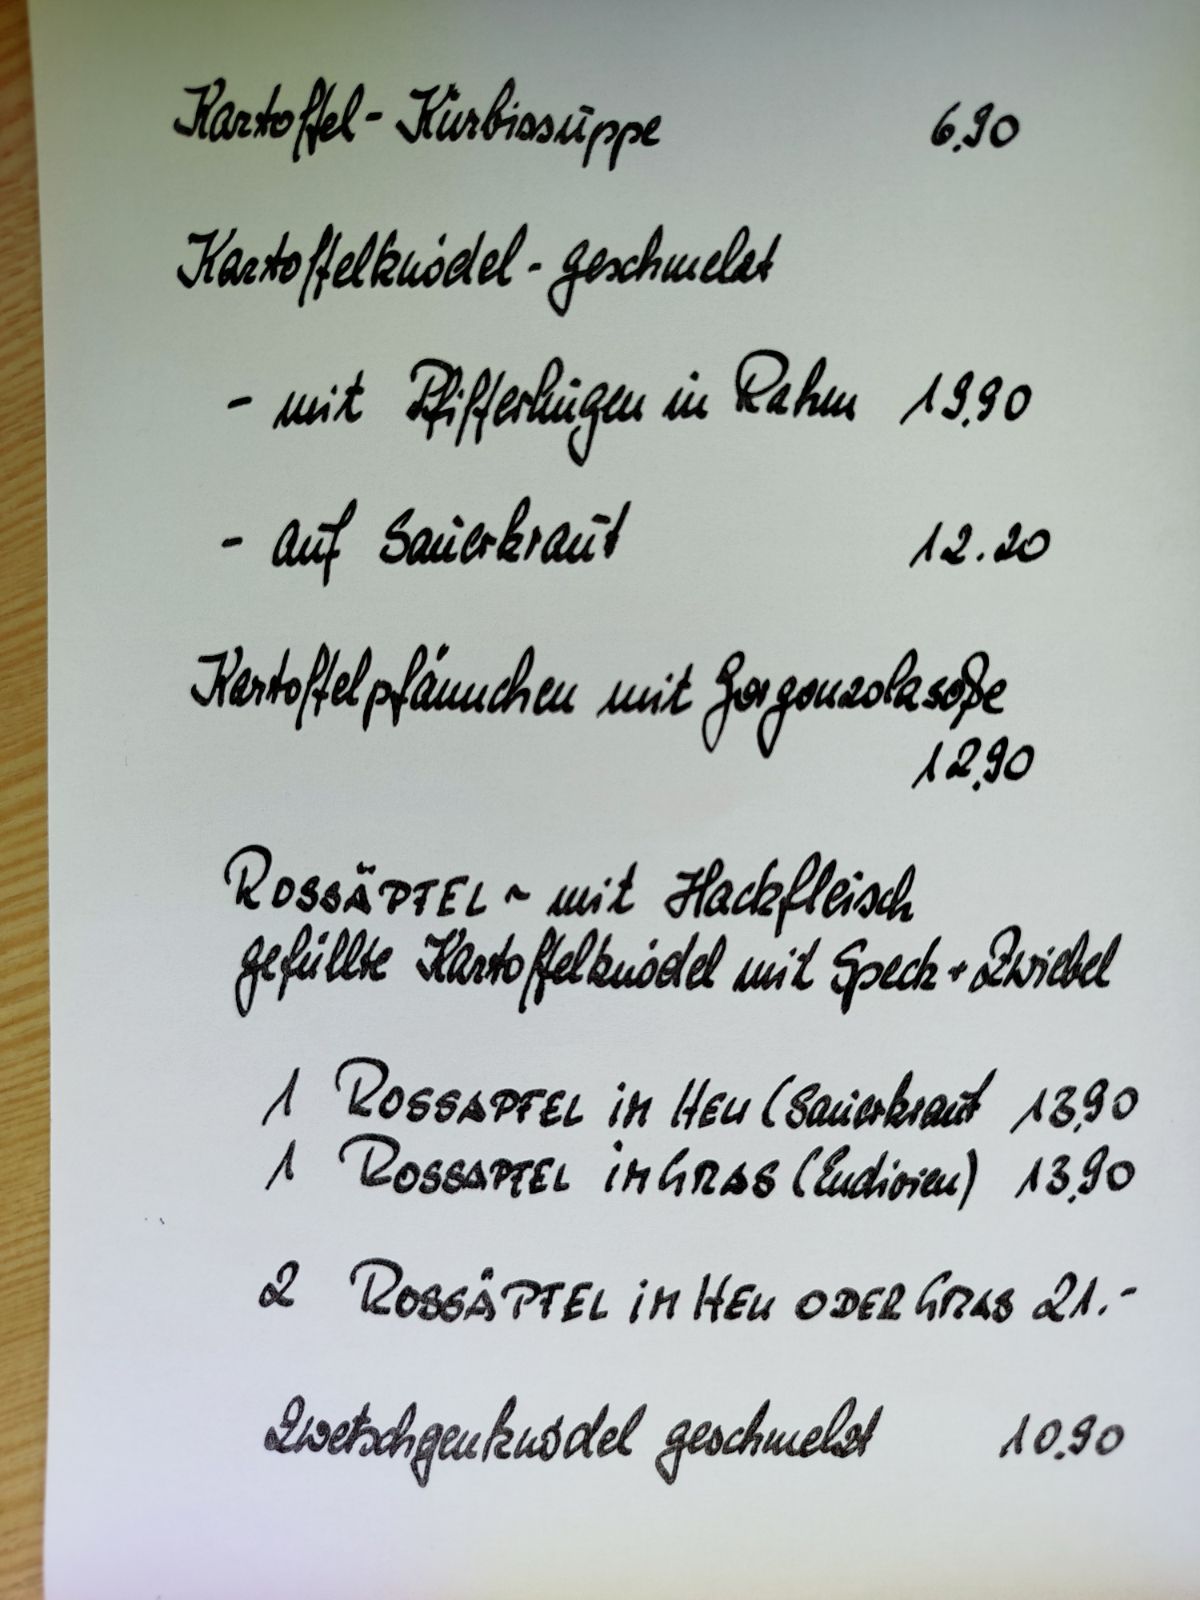 Kartoffel-Kürbissuppe 6,90
Kartoffelknödel - geschmelzt
- mit Pfifferlingen in Rahm 19,90
- auf Sauerkraut 12.20
Kartoffelpfännchen mit Gorgonzolasoße
12,90
ROSSÄPFEL ~ mit Hackfleisch
gefüllte Kartoffelknödel mit Speck + Zwiebel
1 ROSSAPFEL iM HEU (Sauerkraut 13,90
1 ROSSAPFEL iM GRAS (Endivien) 13,90
2 ROSSÄPFEL iM HEU ODER GRAS 21.-
Zwetschgenknödel geschmelzt 10,90